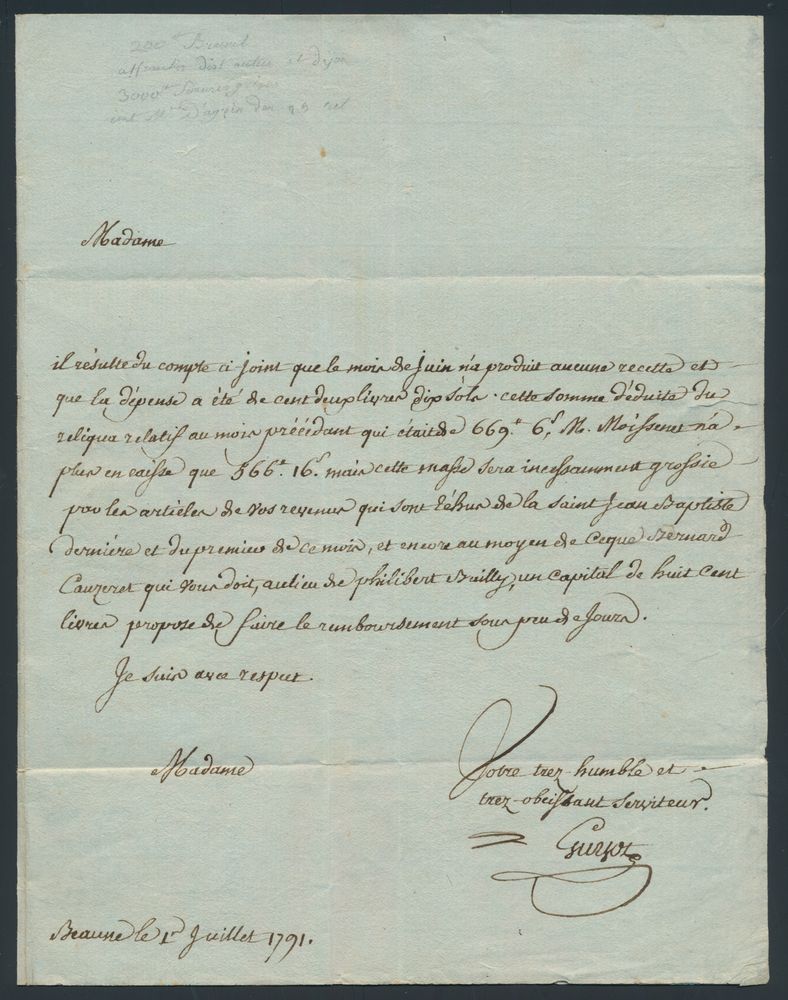 200<sup>tt</sup> Breuil
et Dijon
3000<sup>tt</sup>
Madame
il résulte du compte ci joint que le mois de juin n'a produit aucune recette et
que la dépense a été de cent deux livres dix sols. cette somme déduite du
reliqua relatif au mois précédant qui était de 669.<sup>tt</sup> 6.<sup>s</sup> M. Moissenet n'a
plus en caisse que 566.<sup>tt</sup> 16.<sup>s</sup> mais cette masse sera incessamment grossie
par les articles de vos revenus qui sont échus de la saint Jean Baptiste
dernière et du premier de ce mois, et encore au moyen de ce que Bernard
Cauzeret qui vous doit, au lieu de philibert Bailly, un capital de huit cent
livres propose de faire le remboursement sous peu de jours.
Je suis avec respect.
Madame
Votre trez humble et
trez-obeissant serviteur.
Guiyot
Beaune le 1<sup>er</sup> Juillet 1791.